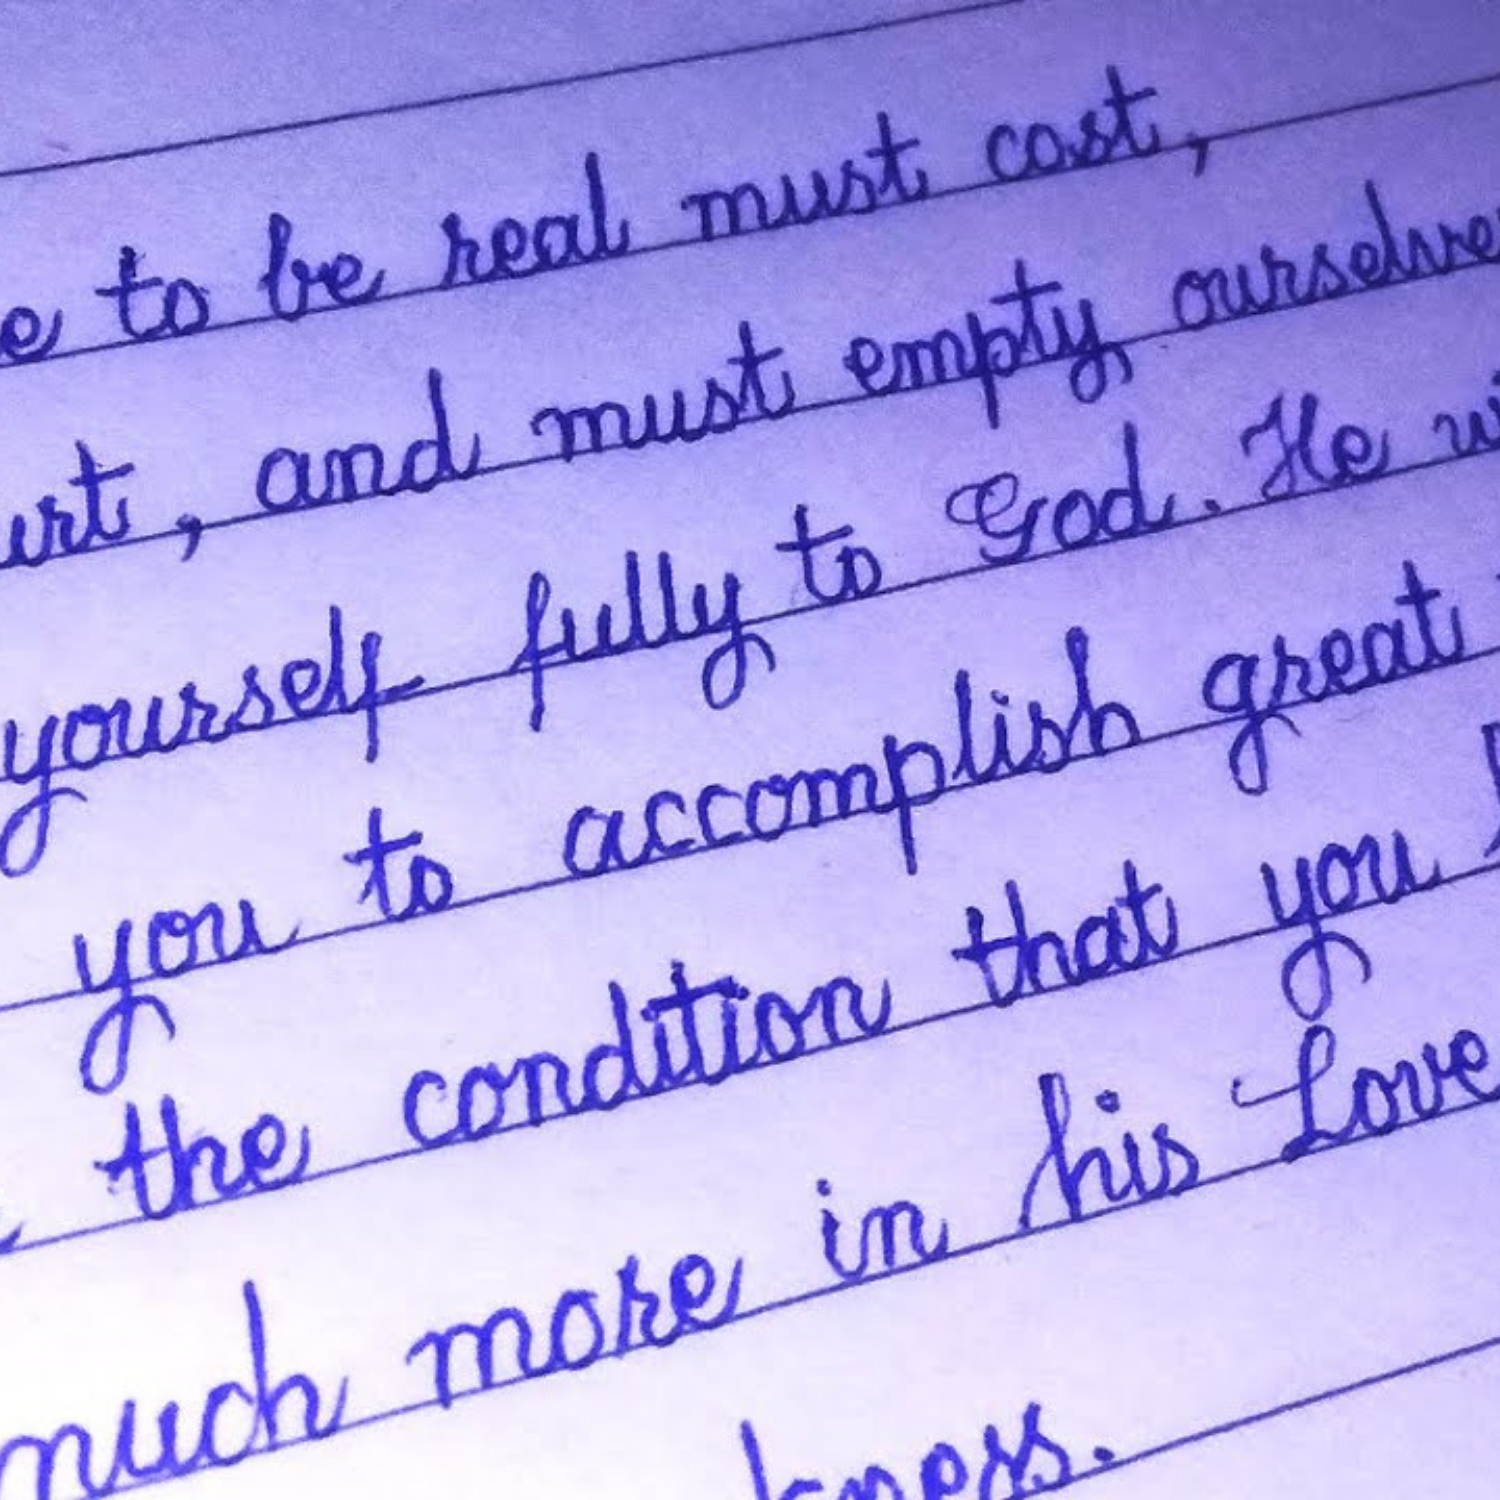 e to be real must cost,
urt, and must empty ourselve
yourself fully to God. He wi
you to accomplish great
the condition that you
much more in his Love
kness.